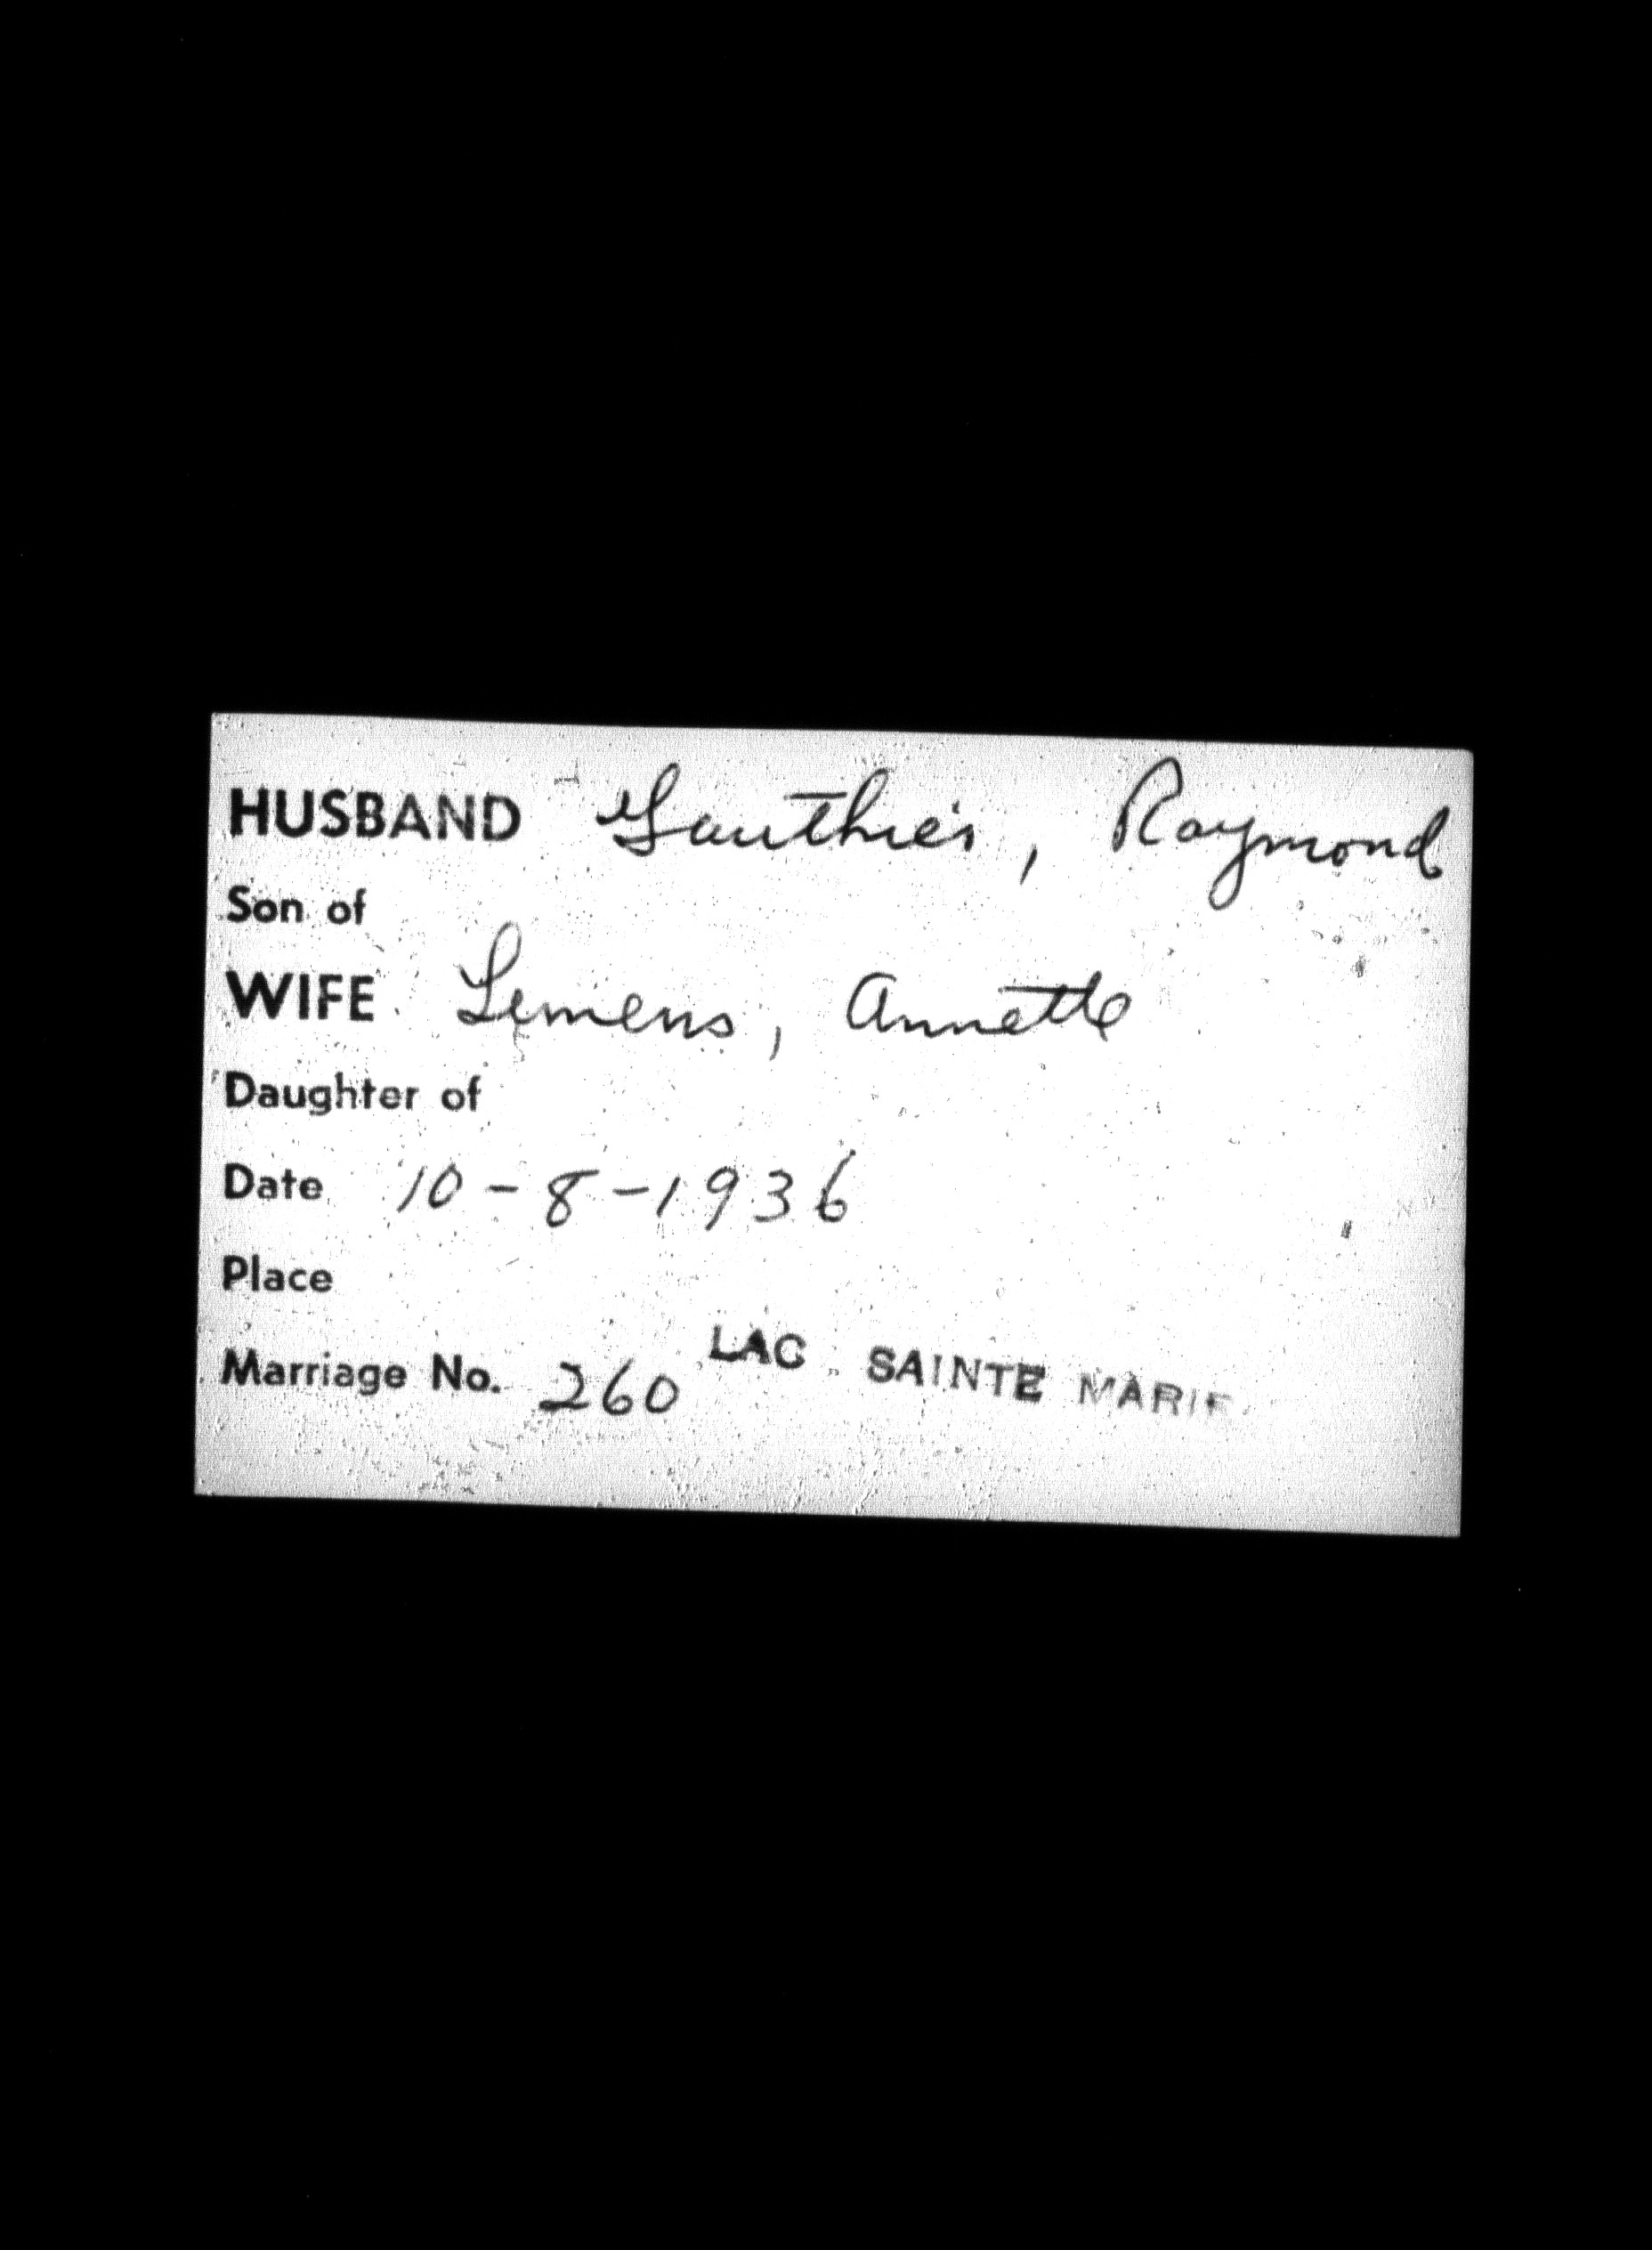 HUSBAND Gauthier, Raymond
Son of
WIFE Lemens, Annette
Daughter of
Date 10-8-1936
Place
LAC SAINTE MARIE
Marriage No. 260